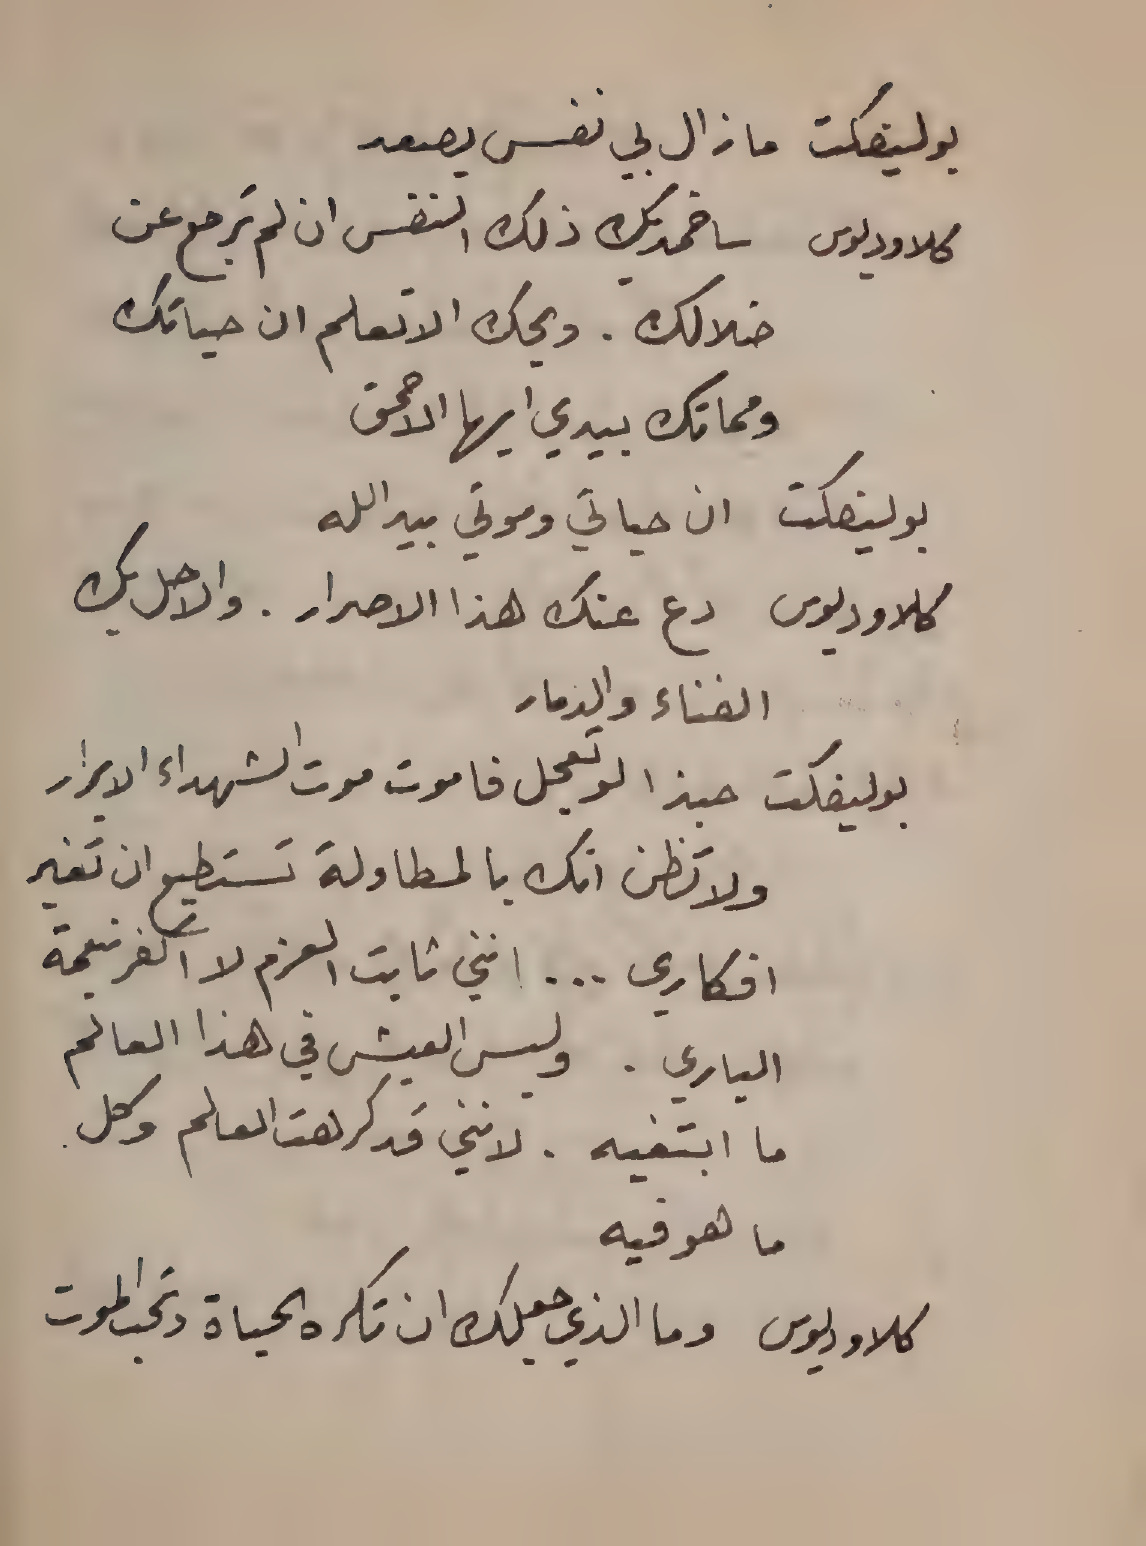 بوليفكت ما زال بي نفس يصعد
كلاوديوس ساخمد بك ذلك النفس ان لم ترجع عن
ضلالك . ويحك الا تعلم ان حياتك
ومماتك بيدي ايها الاحمق
بوليفكت ان حياتي وموتي بيد الله
كلاوديوس دع عنك هذا الاصرار . والا حل بك
الفناء والدمار
بوليفكت حبذا لو تعجل فاموت موت الشهداء الابرار
ولا تظن انك بالمطاولة تستطيع ان تغير
افكاري ... انني ثابت العزم لا اكفر بنعمة
الباري . وليس العيش في هذا العالم
ما ابتغيه . لانني قد كرهت العالم وكل
ما هو فيه
كلاوديوس وما الذي جعلك ان تكره الحياة وتحب الموت